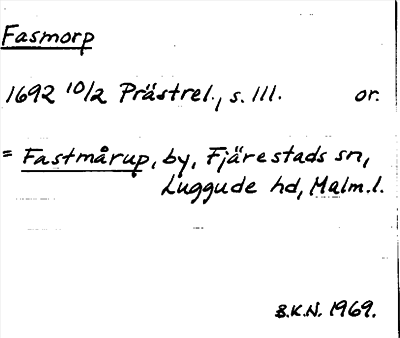 Fasmorp
1692 10/2 Prästrel., s. 111. or.
= Fastmårup, by, Fjärestads sn,
Luggude hd, Malm.l.
B.K.N. 1969.